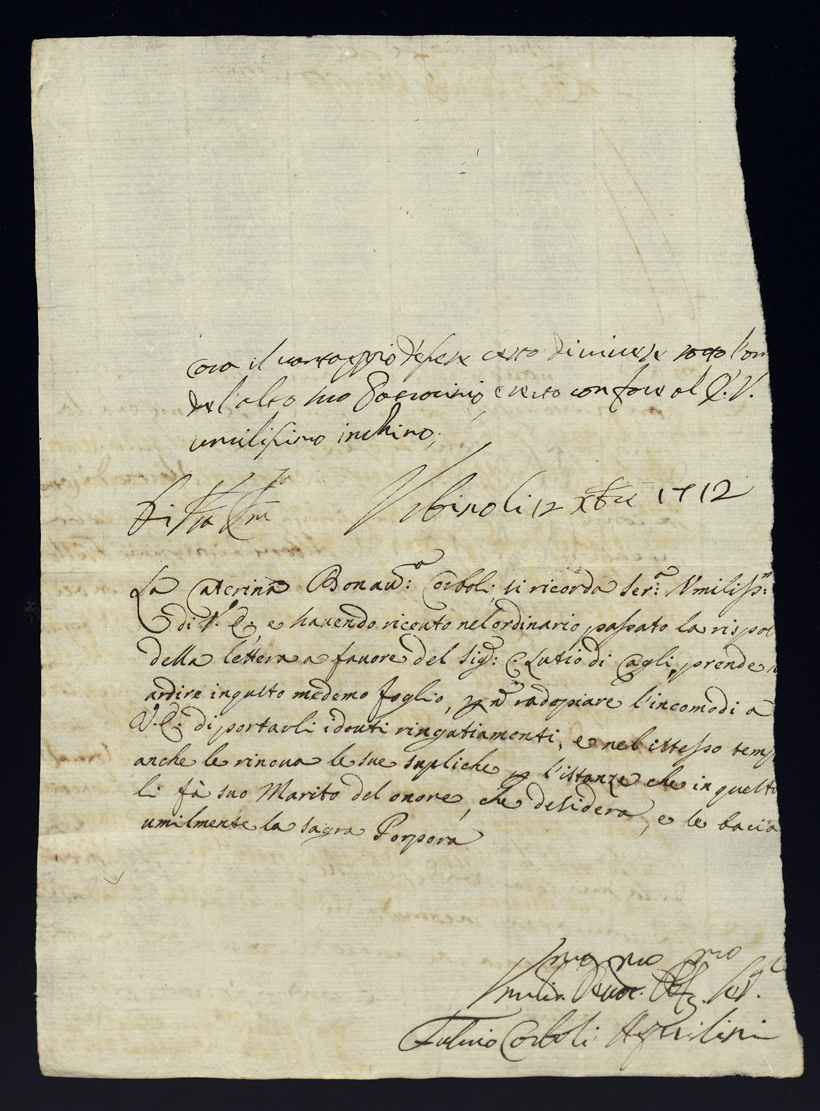 cora il vantaggio d'essere certo di vivere sotto l'om
del'alto suo Patrocinio, e resto con fare al E. V.
umilissimo inchino;
Urbino li 12 Xbre 1712
La Caterina Bonau: Corboli, si ricorda Ser: Umiliss:
di V. E. e havendo riceuto nel ordinario passato la rispos
della lettera a favore del Sig: C. Lutio di Cagli, prende
ardire in questo medemo foglio, radopiare l'incomodi a
V. E. di portarli i douti ringratiamenti, e nel istesso temp
anche le rinova le sue supliche p l'istanze che in questo
li fà suo Marito del onore, che desidera, e le bacia
umilmente la sagra Porpora
Fulvio Corboli